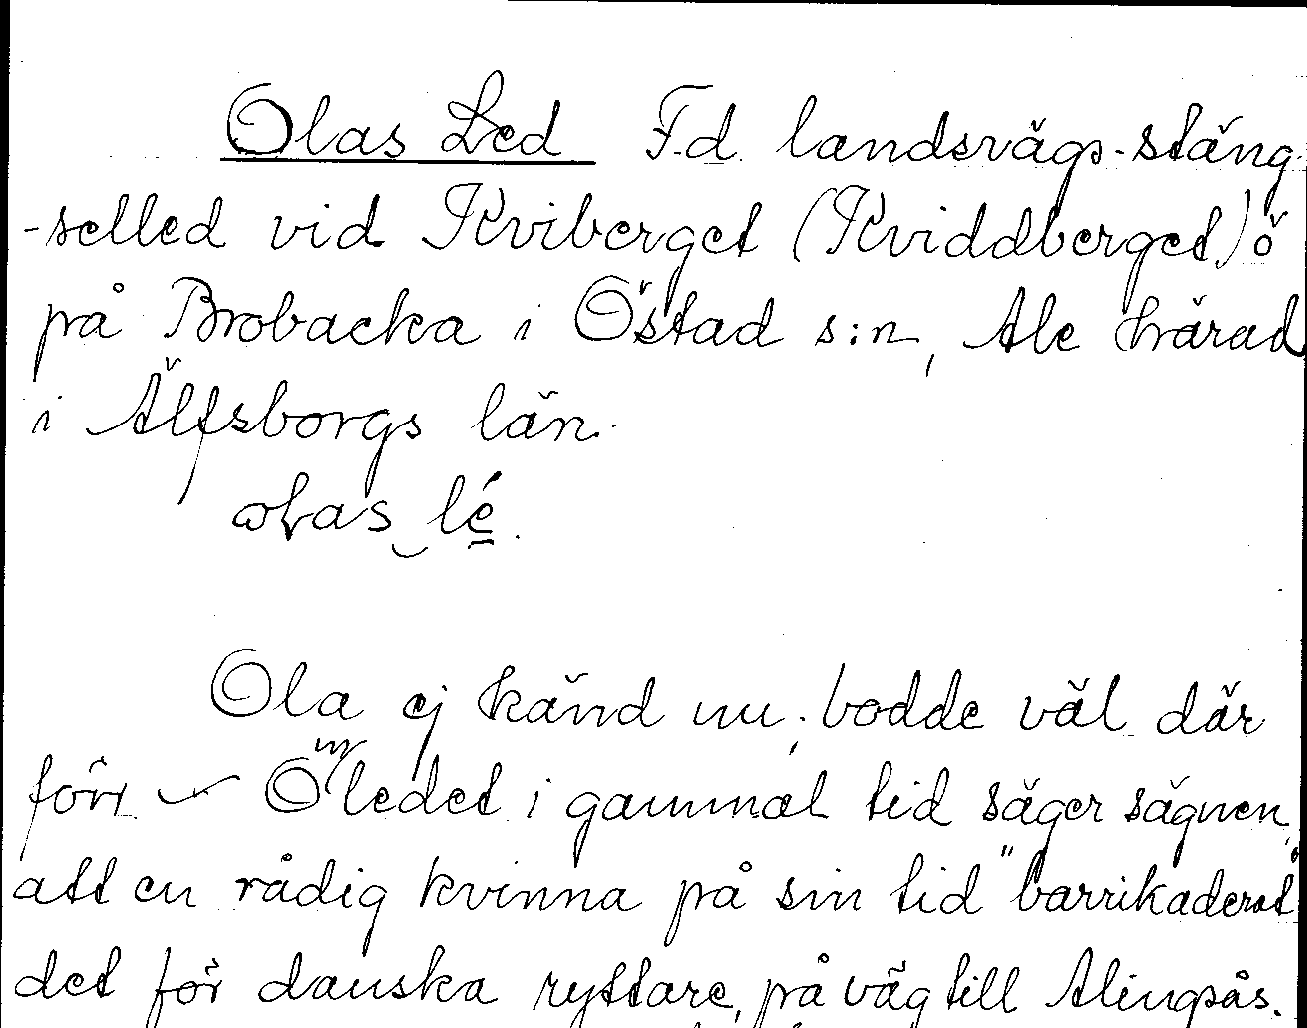 Olas Led F.d. landsvägs-stäng-
-selled vid Kviberget (Kviddberget) ö
på Brobacka i Östad s:n, Ale härad
i Älfsborgs län.
olas lé.
Ola ej känd nu; bodde väl där
förr – Om ledet i gammal tid säger sägnen,
att en rådig kvinna på sin tid "barrikaderat"
det för danska ryttare, på väg till Alingsås.